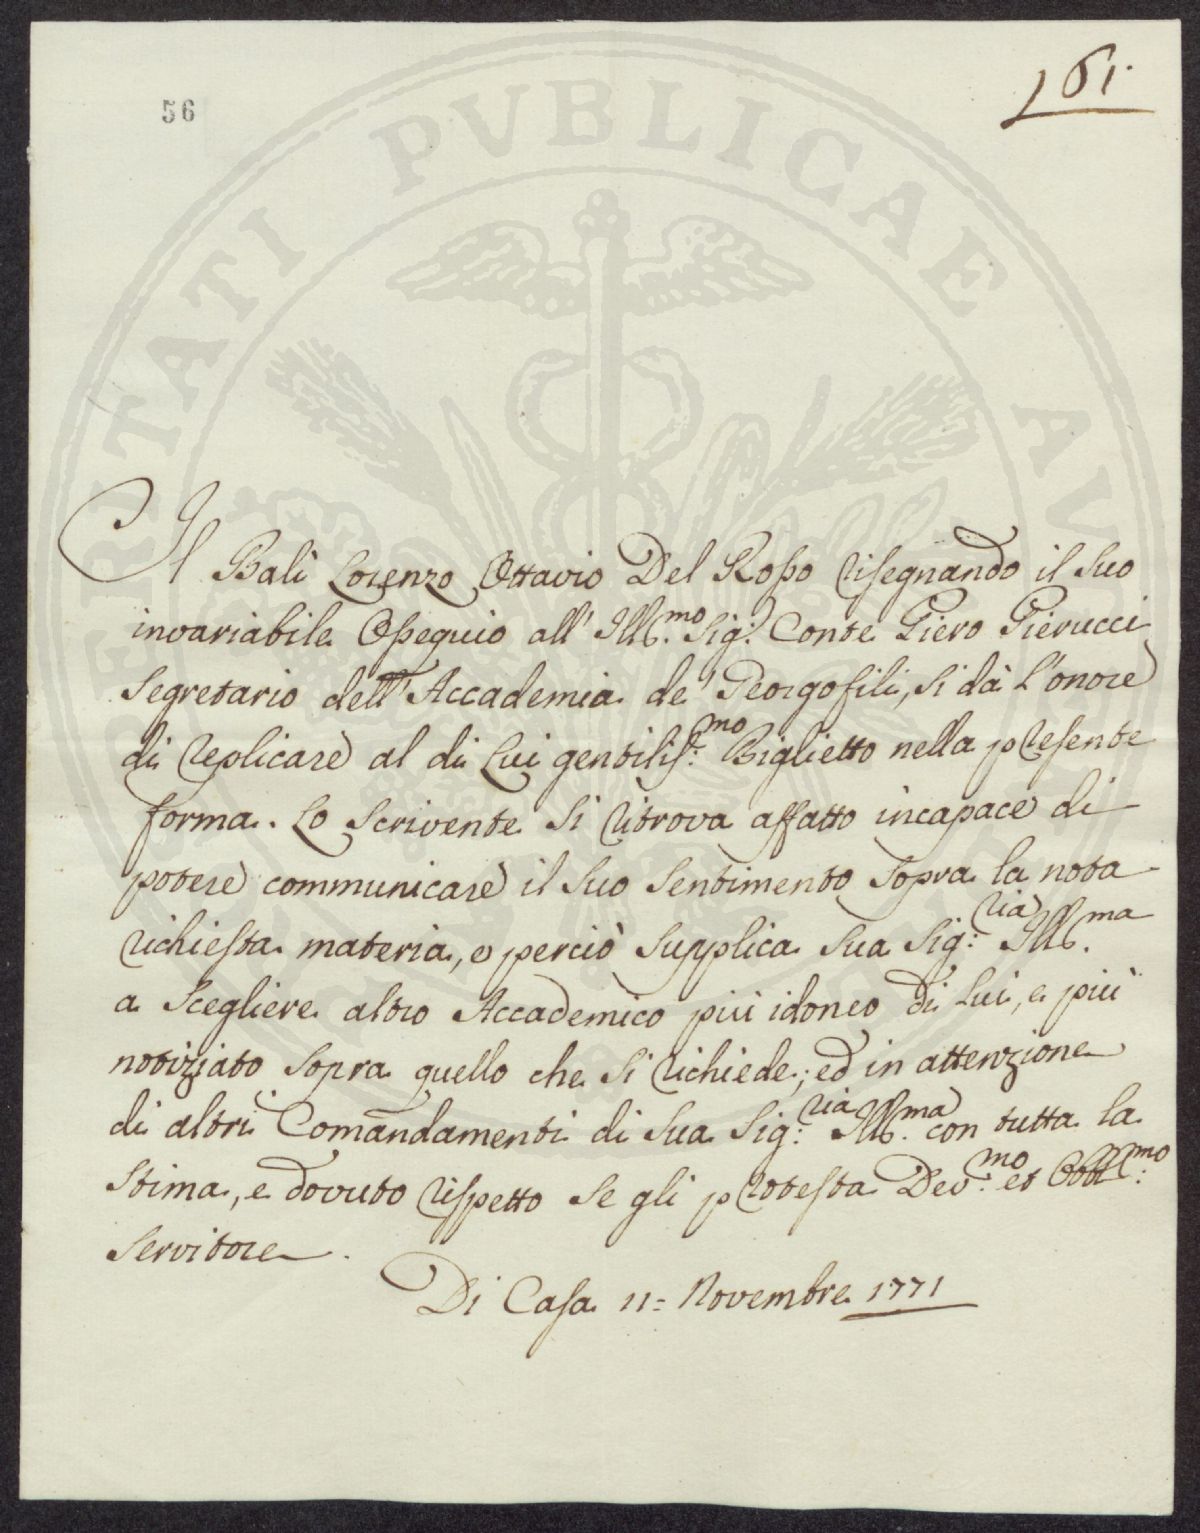 56
161.
PROSPERITATI PVBLICAE AVGENDAE
Il Balì Lorenzo Ottavio Del Rosso risegnando il Suo
invariabile Ossequio all' Ill.mo Sig: Conte Piero Pierucci
Segretario dell' Accademia de' Georgofili, si dà l'onore
di replicare al di Lui gentiliss:mo Biglietto nella presente
forma. Lo Scrivente si ritrova affatto incapace di
potere communicare il Suo Sentimento sopra la nota
richiesta materia, e perciò Supplica Sua Sig:ria Ill.ma
a Scegliere altro Accademico più idoneo di Lui, e più
notiziato sopra quello che si richiede; ed in attenzione
di altri Comandamenti di Sua Sig:ria Ill.ma con tutta la
Stima, e dovuto rispetto se gli protesta Dev:mo et Obbl:mo
Servitore.
Di Casa 11= Novembre 1771